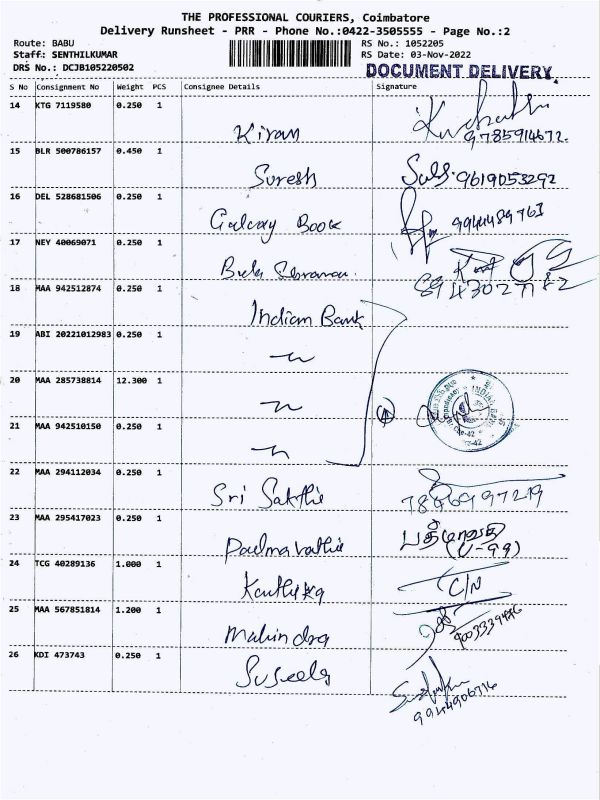 THE PROFESSIONAL COURIERS, Coimbatore
Delivery Runsheet - PRR - Phone No.:0422-3505555 - Page No.:2
Route: BABU RS No.: 1052205
Staff: SENTHILKUMAR RS Date: 03-Nov-2022
DRS No.: DCJB105220502 DOCUMENT DELIVERY
S No Consignment No Weight PCS Consignee Details Signature
14 KTG 7119580 0.250 1
Kiran 9785914672.
15 BLR 500786157 0.450 1
Suresh 9619053292
16 DEL 528681506 0.250 1
Galaxy Book 9944489763
17 NEY 40069071 0.250 1
18 MAA 942512874 0.250 1
8943027182
Indian Bank
19 ABI 20221012983 0.250 1
20 MAA 285738814 12.300 1
21 MAA 942510150 0.250 1
22 MAA 294112034 0.250 1
Sri Sakthi 7846997219
23 MAA 295417023 0.250 1
Padmavathi பத்மாவதி
(U-99)
24 TCG 40289136 1.000 1
Karthika C/N
25 MAA 567851814 1.200 1
Mahindra
26 KDI 473743 0.250 1
Suseela
9944906716